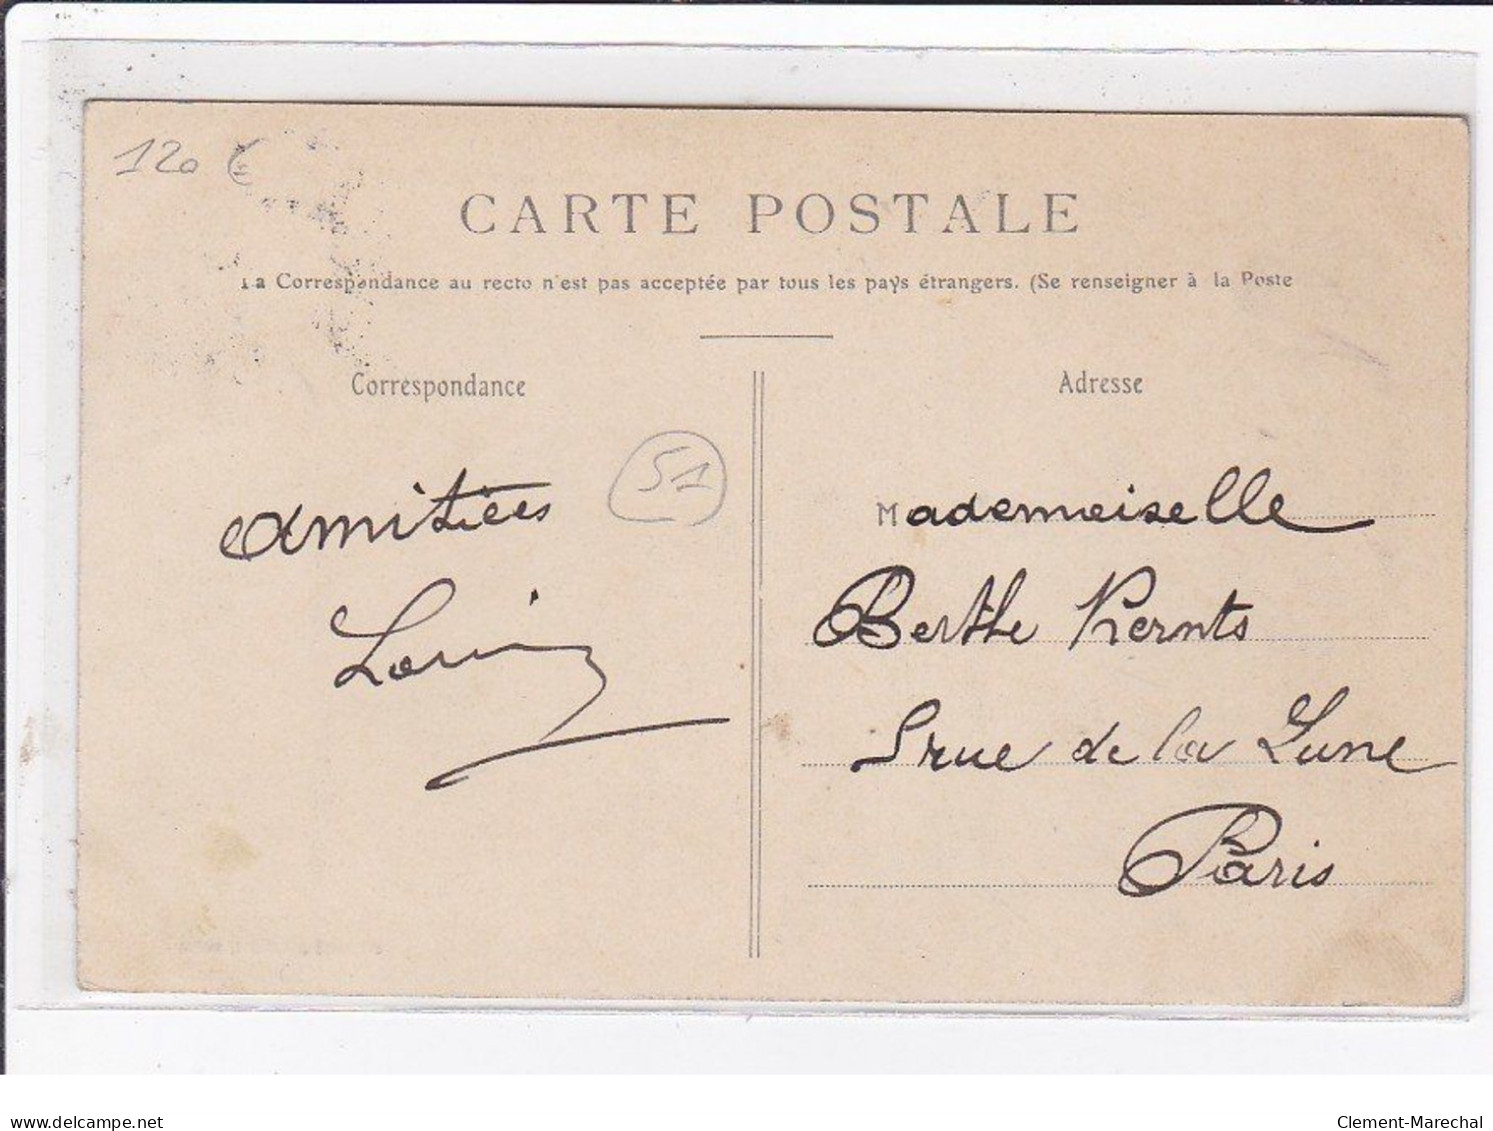 120 €
CARTE POSTALE
La Correspondance au recto n'est pas acceptée par tous les pays étrangers. (Se renseigner à la Poste
Correspondance
Adresse
51
amitiées
Mademoiselle
Berthe Kernts
5 rue de la Lune
Paris
delcampe.net
Clement-Marechal